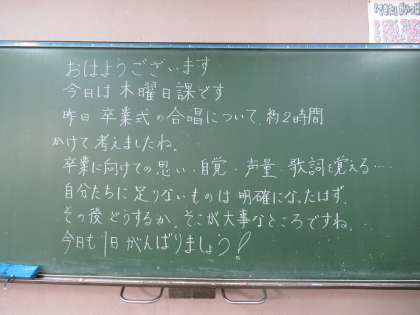 おはようございます
今日は木曜日課です
昨日卒業式の合唱について、約2時間
かけて考えましたね。
卒業に向けての思い・自覚・声量・歌詞を覚える…
自分たちに足りないものは明確になったはず。
その後どうするか、そこが大事なところですね。
今日も1日がんばりましょう!